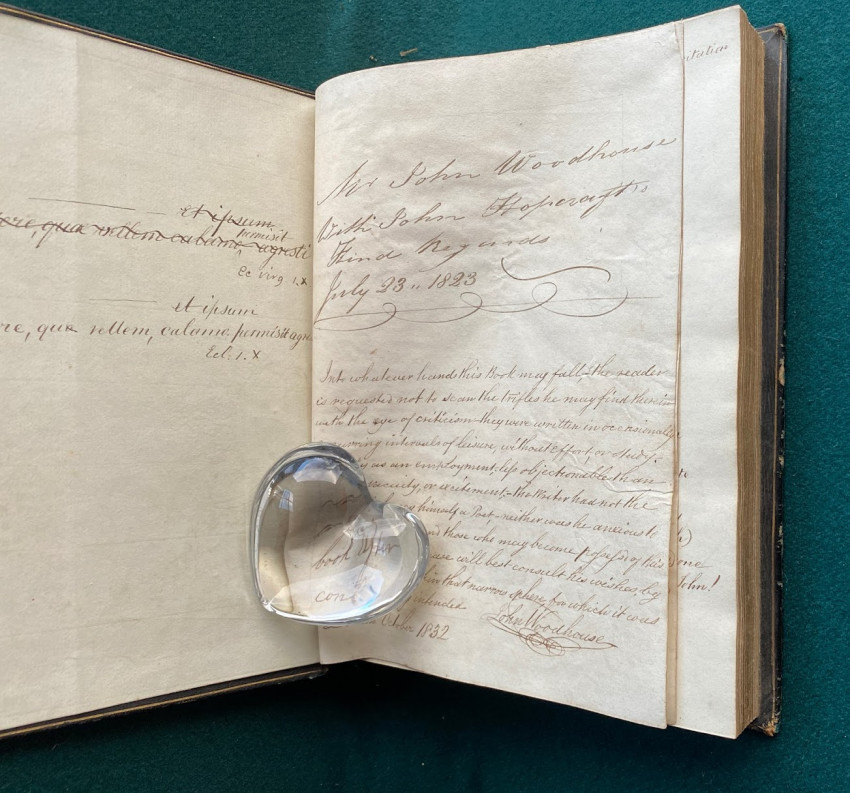 et ipsum
ere, quæ vellem calamo agresti
permisit
Ec virg 1.X
et ipsum
re, quæ vellem, calamo, permisit agre
Ecl. 1. X
Mr John Woodhouse
With John Hopcraft's
Kind Regards
July 23.. 1823
Into whatever hands this Book may fall, the reader
is requested not to scan the trifles he may find therein
with the eye of criticism they were written in occasionally
intervals of leisure, without effort, or study,
as an employment, less objectionable than
or excitement, the Writer had not the
himself a Poet, neither was he anxious to
those who may become possess'd of this
will best consult his wishes, by
in that narrow sphere, for which it was
intended
October 1832
John Woodhouse
book after
itation
one
John!